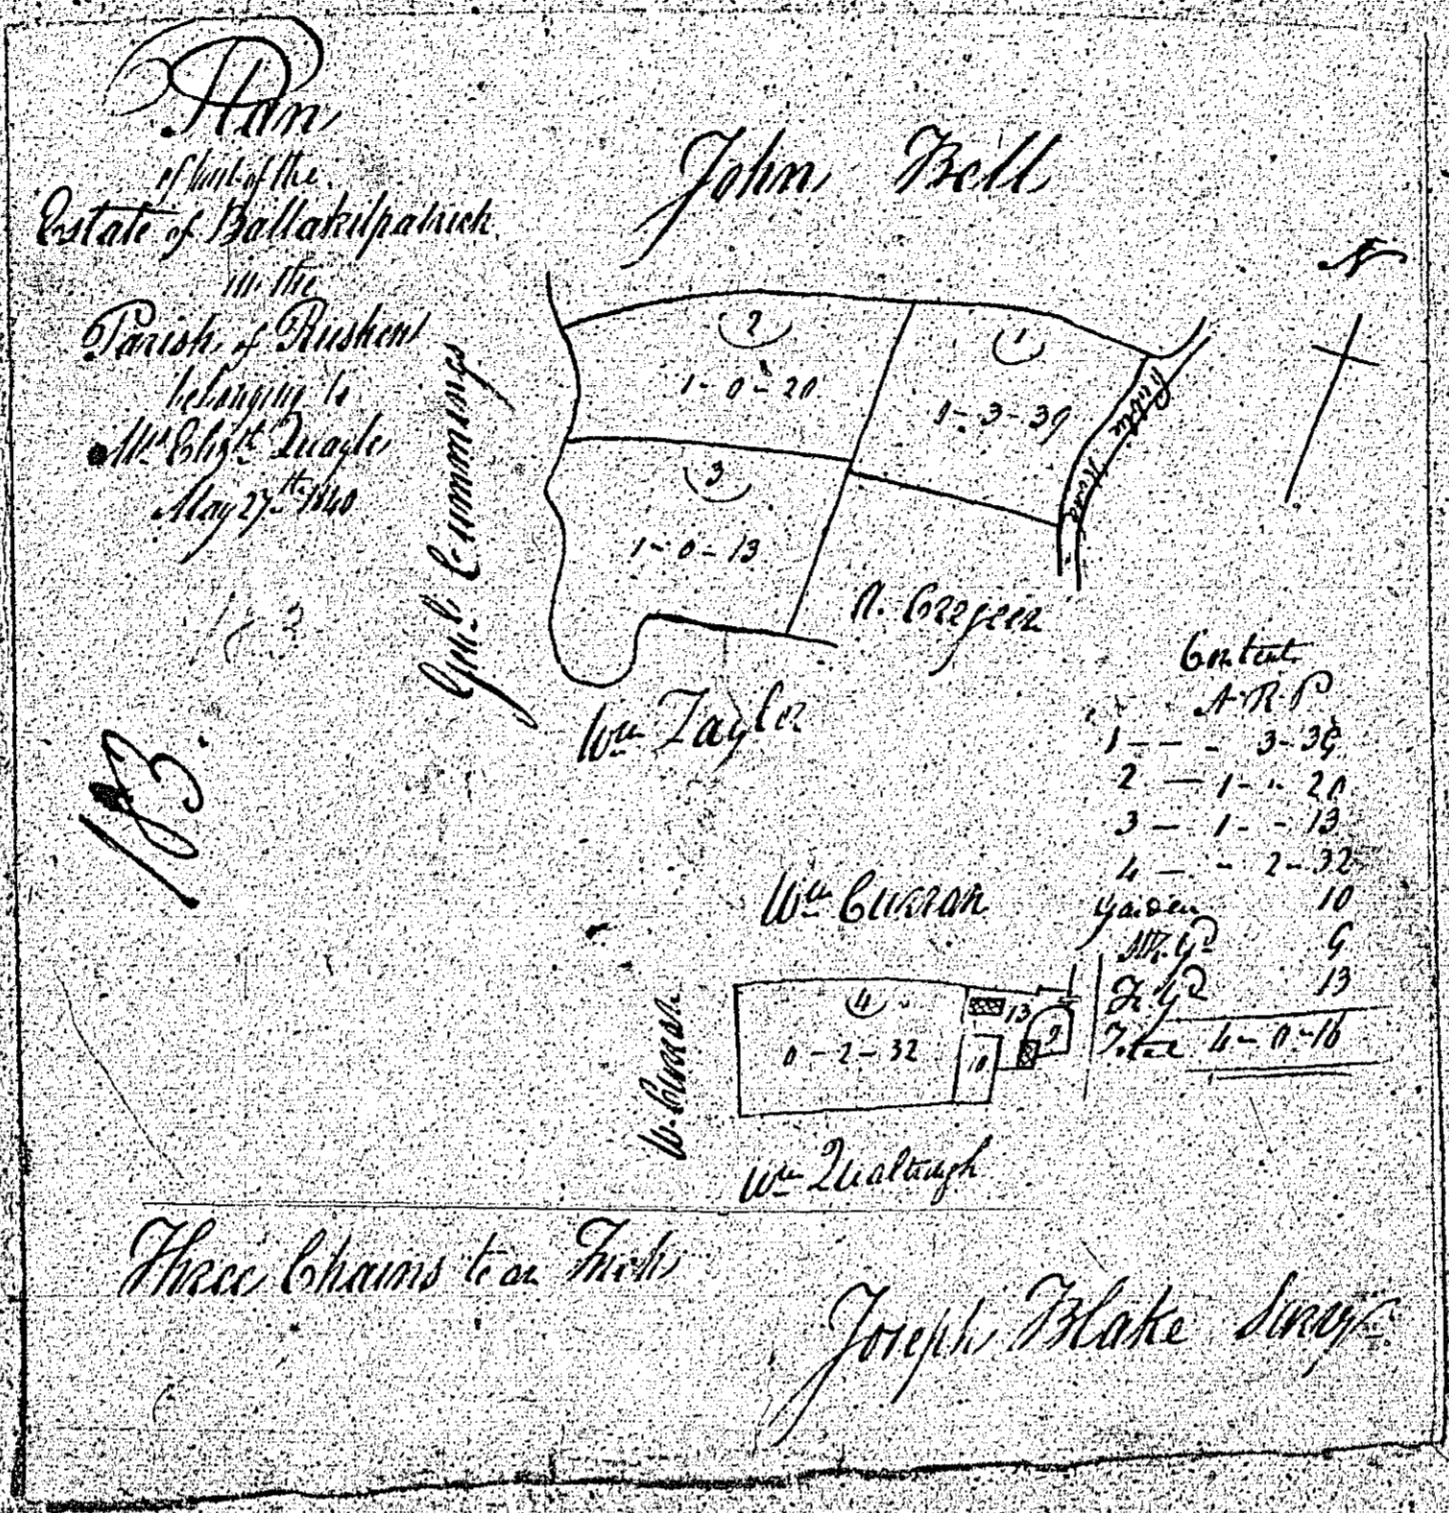 Plan
of part of the
Estate of Ballakilpatrick
in the
Parish of Rushen
belonging to
Mrs Elizth Quayle
May 27th 1840
183.
John Bell
N
2
1-0-20
1
1-3-39
Public Road
3
1-0-13
Genl Cummings
R. Cregeen
Wm Taylor
Content
A-R-P
1 - - - 3-39
2 - 1 - " 20
3 - 1 - - 13
4 - - 2-32
Garden 10
9
13
Total 4-0-16
Wm Curran
W. Curran
4
0-2-32
13
9
10
Wm Qualtrough
Three Chains to an Inch
Joseph Blake Survyr